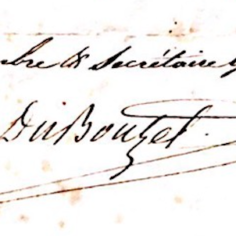 mbre & Secrétaire g
DuBouzet